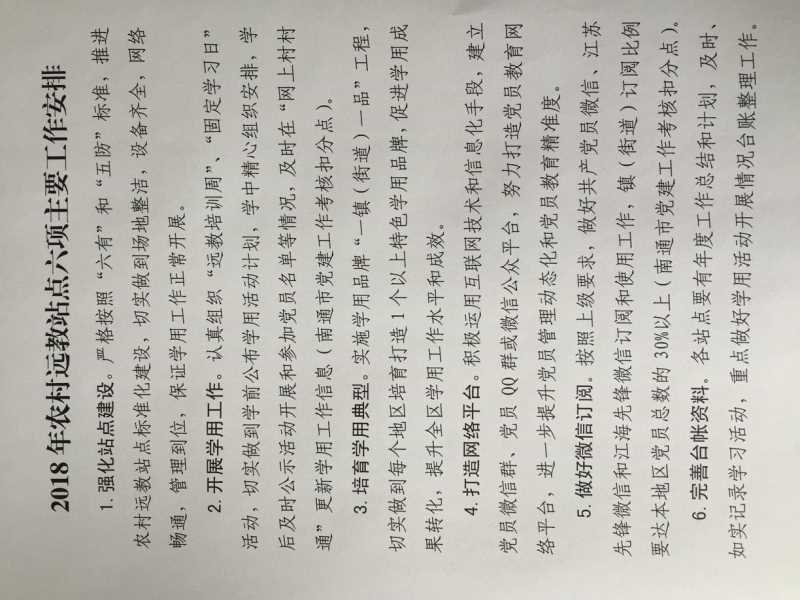 2018 年农村远教站点六项主要工作安排
1. 强化站点建设。严格按照“六有”和“五防”标准，推进
农村远教站点标准化建设，切实做到场地整洁，设备齐全，网络
畅通，管理到位，保证学用工作正常开展。
2. 开展学用工作。认真组织“远教培训周”、“固定学习日”
活动，切实做到学前公布学用活动计划，学中精心组织安排，学
后及时公示活动开展和参加党员名单等情况，及时在“网上村村
通”更新学用工作信息（南通市党建工作考核扣分点）。
3. 培育学用典型。实施学用品牌“一镇（街道）一品”工程，
切实做到每个地区培育打造 1 个以上特色学用品牌，促进学用成
果转化，提升全区学用工作水平和成效。
4. 打造网络平台。积极运用互联网技术和信息化手段，建立
党员微信群、党员 QQ 群或微信公众平台，努力打造党员教育网
络平台，进一步提升党员管理动态化和党员教育精准度。
5. 做好微信订阅。按照上级要求，做好共产党员微信、江苏
先锋微信和江海先锋微信订阅和使用工作，镇（街道）订阅比例
要达本地区党员总数的 30%以上（南通市党建工作考核扣分点）。
6. 完善台帐资料。各站点要有年度工作总结和计划，及时、
如实记录学习活动，重点做好学用活动开展情况台账整理工作。